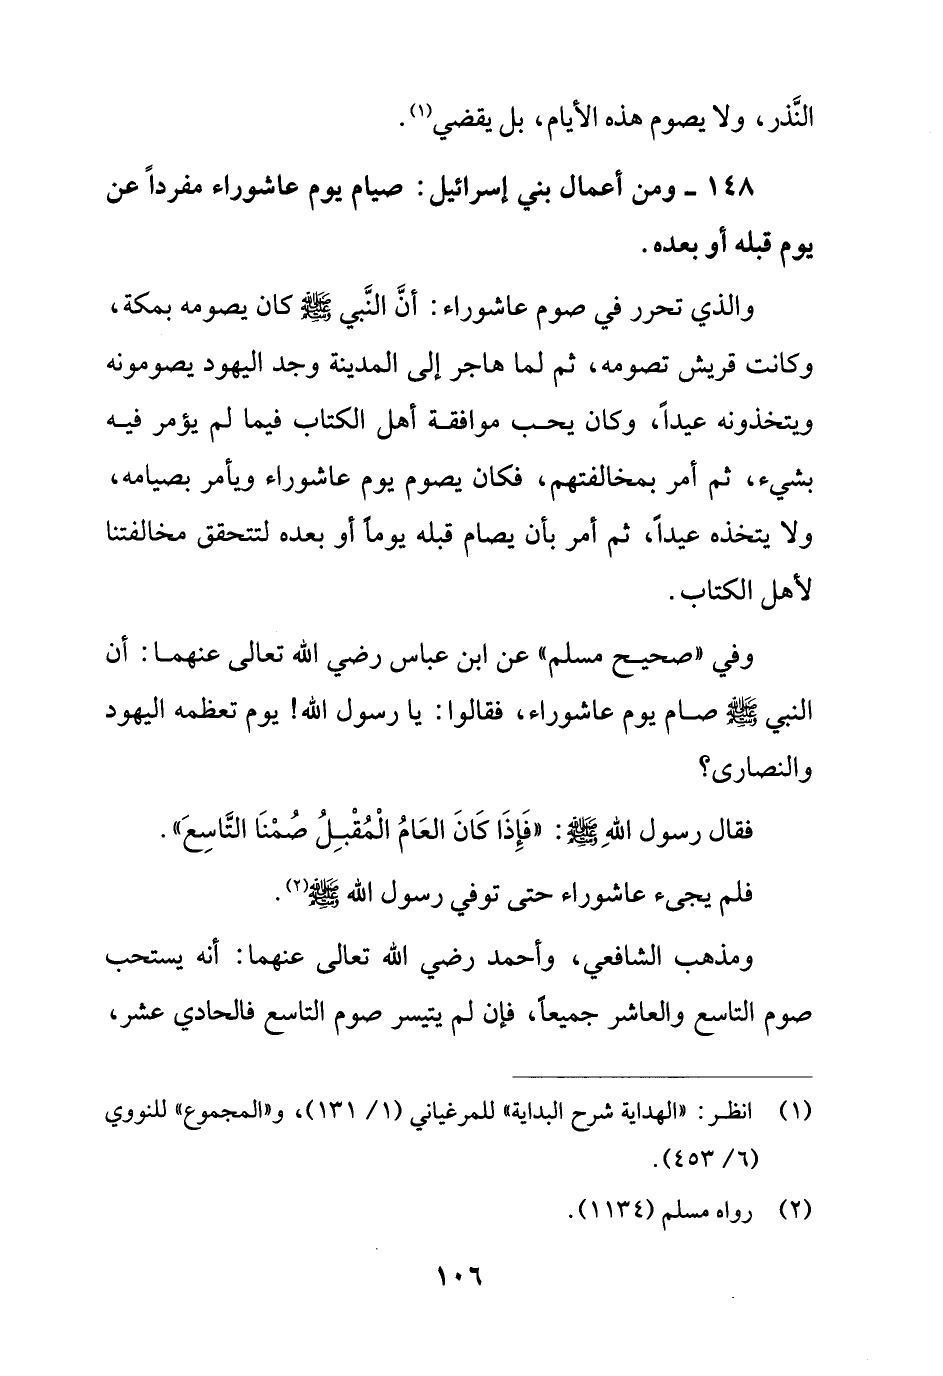 النَّذر، ولا يصوم هذه الأيام، بل يقضي(١).
١٤٨ ـ ومن أعمال بني إسرائيل: صيام يوم عاشوراء مفرداً عن
يوم قبله أو بعده.
والذي تحرر في صوم عاشوراء: أنَّ النَّبي ﷺ كان يصومه بمكة،
وكانت قريش تصومه، ثم لما هاجر إلى المدينة وجد اليهود يصومونه
ويتخذونه عيداً، وكان يحب موافقة أهل الكتاب فيما لم يؤمر فيه
بشيء، ثم أمر بمخالفتهم، فكان يصوم يوم عاشوراء ويأمر بصيامه،
ولا يتخذه عيداً، ثم أمر بأن يصام قبله يوماً أو بعده لتتحقق مخالفتنا
لأهل الكتاب.
وفي «صحيح مسلم» عن ابن عباس رضي الله تعالى عنهما: أن
النبي ﷺ صام يوم عاشوراء، فقالوا: يا رسول الله! يوم تعظمه اليهود
والنصارى؟
فقال رسول اللهِ ﷺ: «فَإِذَا كَانَ العَامُ الْمُقْبِلُ صُمْنَا التَّاسِعَ».
فلم يجىء عاشوراء حتى توفي رسول الله ﷺ(٢).
ومذهب الشافعي، وأحمد رضي الله تعالى عنهما: أنه يستحب
صوم التاسع والعاشر جميعاً، فإن لم يتيسر صوم التاسع فالحادي عشر،
(١) انظر: «الهداية شرح البداية» للمرغياني (١/ ١٣١)، و«المجموع» للنووي
(٦/ ٤٥٣).
(٢) رواه مسلم (١١٣٤).
١٠٦